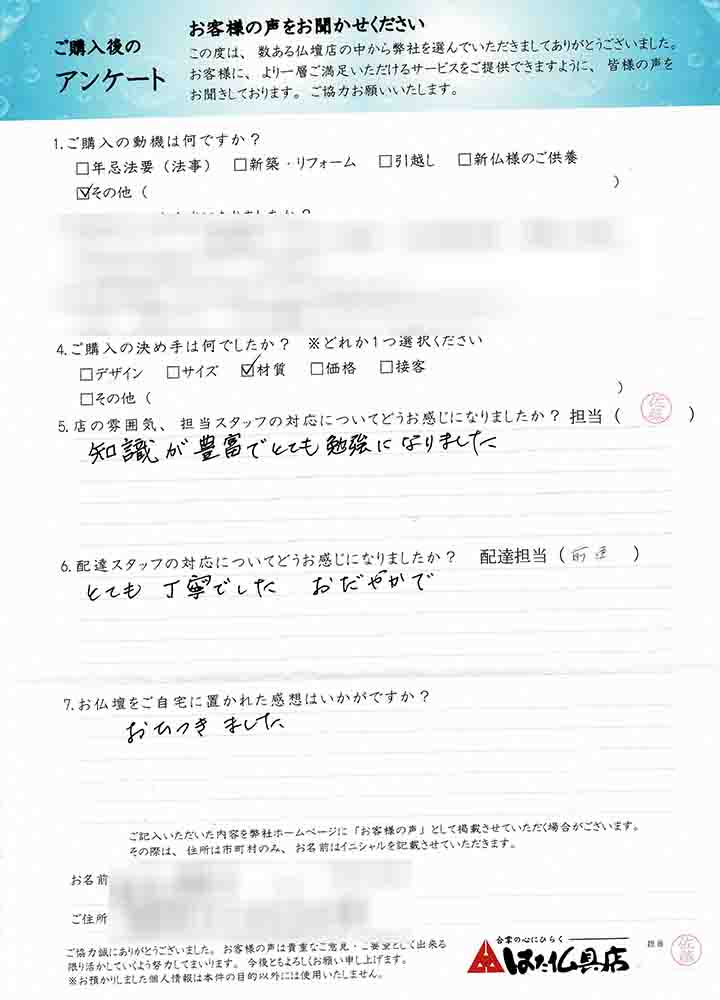 ご購入後の
アンケート
お客様の声をお聞かせください
この度は、数ある仏壇店の中から弊社を選んでいただきましてありがとうございました。
お客様に、より一層ご満足いただけるサービスをご提供できますように、皆様の声を
お聞きしております。ご協力お願いいたします。
1.ご購入の動機は何ですか？
□年忌法要（法事） □新築・リフォーム □引越し □新仏様のご供養
☑その他（ ）
4.ご購入の決め手は何でしたか？ ※どれか1つ選択ください
□デザイン □サイズ ☑材質 □価格 □接客
□その他（ ）
5.店の雰囲気、担当スタッフの対応についてどうお感じになりましたか？ 担当（ 佐藤 ）
知識が豊富でとても勉強になりました
6.配達スタッフの対応についてどうお感じになりましたか？ 配達担当（ ）
とても丁寧でした おだやかで
7.お仏壇をご自宅に置かれた感想はいかがですか？
おちつきました
ご記入いただいた内容を弊社ホームページに「お客様の声」として掲載させていただく場合がございます。
その際は、住所は市町村のみ、お名前はイニシャルを記載させていただきます。
お名前
ご住所
ご協力誠にありがとうございました。お客様の声は貴重なご意見・ご要望として出来る
限り活かしていくよう努力してまいります。今後ともよろしくお願い申し上げます。
※お預かりしました個人情報は本件の目的以外には使用いたしません。
合掌の心にひらく
はた仏具店
担当 佐藤